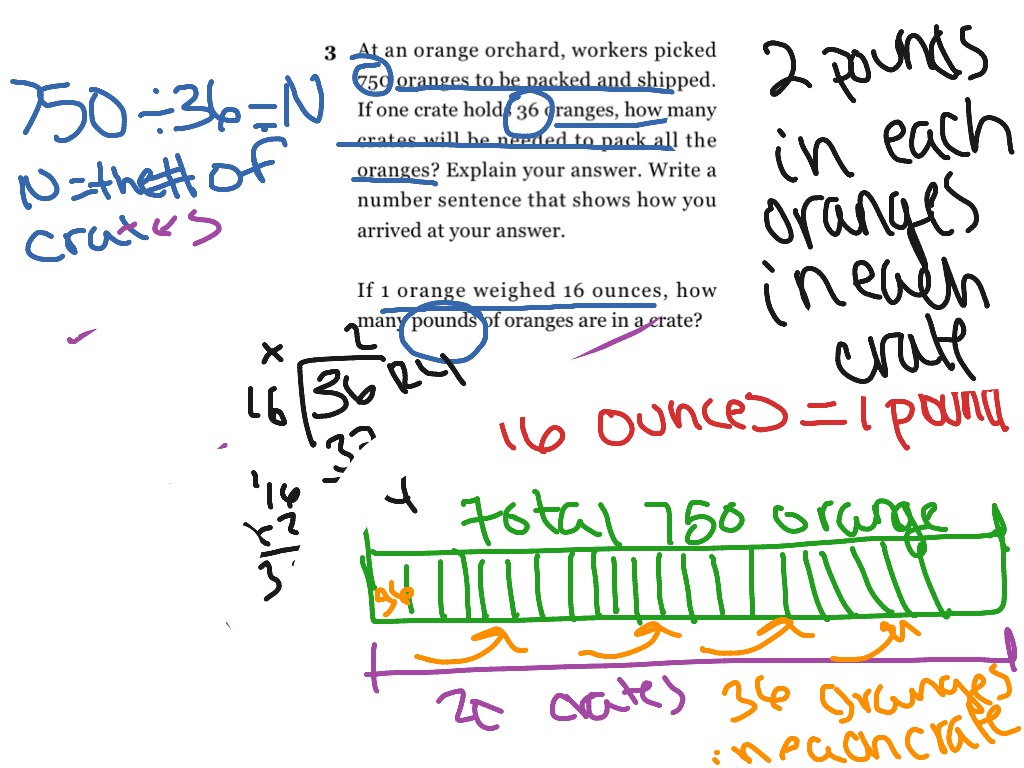 3 At an orange orchard, workers picked
750 oranges to be packed and shipped.
If one crate holds 36 oranges, how many
crates will be needed to pack all the
oranges? Explain your answer. Write a
number sentence that shows how you
arrived at your answer.
If 1 orange weighed 16 ounces, how
many pounds of oranges are in a crate?
750 ÷ 36 = N
N = the # of
crates
2 pounds
in each
oranges
in each
crate
x 2
16 36 R4
- 32
4
1 16
x 2
3
16 ounces = 1 pound
Total 750 orange
36
crates
36 oranges
in each crate